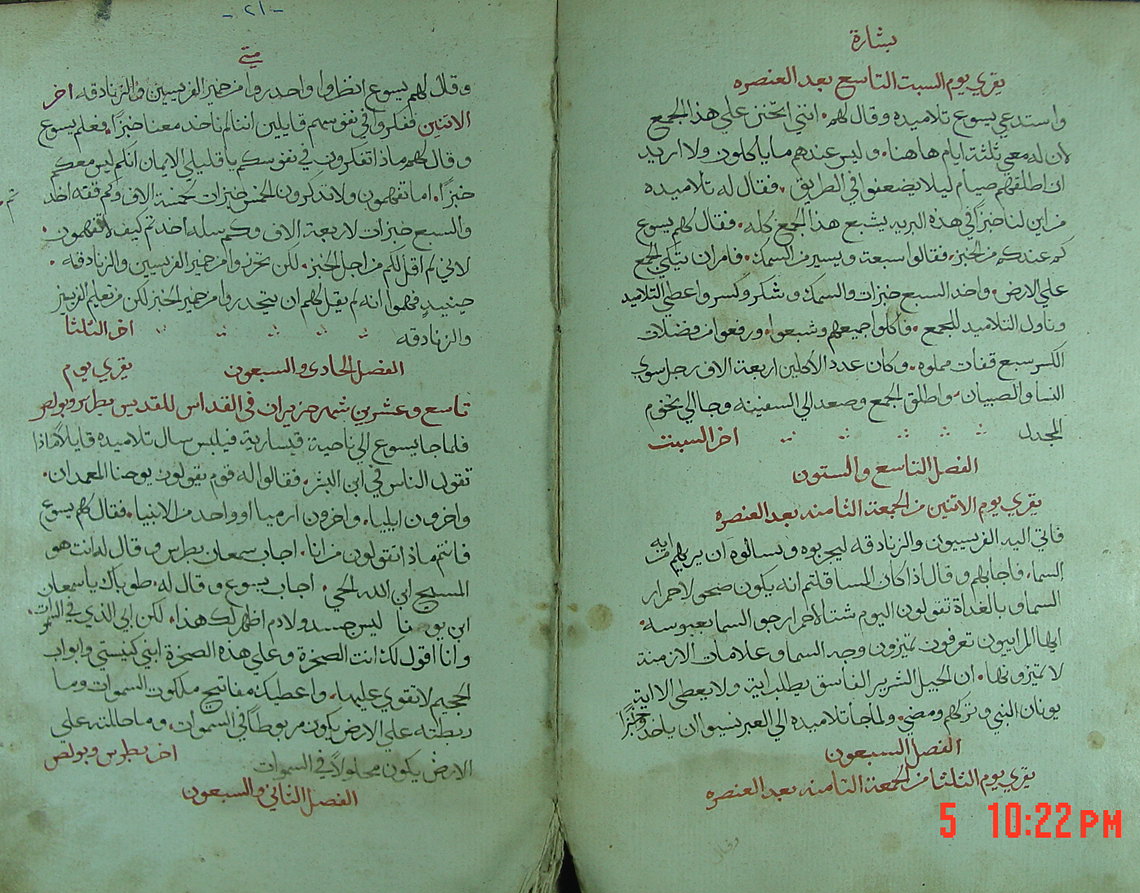 بشارة
يقري يوم السبت التاسع بعد العنصره
واستدعي يسوع تلاميذه وقال لهم. انني اتحنن علي هذا الجمع
لان له معي ثلثة ايام هاهنا. وليس عندهم ما ياكلون ولا اريد
ان اطلقهم صيام ليلا يضعفوا في الطريق. فقال له تلاميذه
من اين لنا خبزا في هذه البريه يشبع هذا الجمع كله. فقال لهم يسوع
كم عندكم من الخبز. فقالوا سبعة ويسير من السمك. فامر ان يتكي الجمع
علي الارض. واخد السبع خبزات والسمك وشكر وكسر واعطي التلاميد
وناول التلاميد للجمع. فاكلوا جميعهم وشبعوا. ورفعوا من فضلات
الكسر سبع قفات مملوه. وكان عدد الاكلين اربعة الاف رجل سوي
النسا والصبيان. واطلق الجمع وصعد الي السفينه وجا الي تخوم
المجدل اخر السبت
الفصل التاسع والستون
يقري يوم الاتنين من الجمعة التامنه بعد العنصره
فاتي اليه الفريسيون والزنادقه ليجربوه ويسالوه ان يريهم ايه من
السما. فاجابهم وقال اذا كان المسا قلتم انه يكون صحو لاحمرار
السما وبالغداة تقولون اليوم شتا لاحمرار جو السما بعبوسه.
ايها المراييون تعرفون تميزون وجه السما وعلامات الازمنة
لا تميزونها. ان الجيل الشرير الفاسق يطلب اية ولا يعطي الا اية
يونان النبي وتركهم ومضي. ولما جا تلاميذه الي العبر نسيوا ان ياخدو خبزا
الفصل السبعون
يقري يوم التلتا من الجمعة التامنه بعد العنصره
وقال
-٢١-
متي
وقال لهم يسوع انظروا واحدروا من خمير الفريسيين والزنادقه اخر
الاتنين ففكروا في نفوسهم قايلين اننا لم ناخد معنا خبزا. فعلم يسوع
وقال لهم ماذا تفكرون في نفوسكم يا قليلي الايمان انكم ليس معكم
خبزا. اما تفهمون ولا تذكرون الخمس خبزات لخمسة الاف وكم قفه اخد
تم
والسبع خبزات لاربعة الاف وكم سله اخدتم كيف لا تفهمون.
لاني لم اقل لكم من اجل الخبز. لكن تحرزوا من خمير الفريسيين والزنادقه.
حينيد فهموا انه لم يقل لهم ان يتحدروا من خمير الخبز لكن من تعليم الفريسيين
والزنادقه اخر التلتا
الفصل الحادي والسبعون يقري يوم
تاسع وعشرين شهر حزيران في القداس للقديس بطرس وبولص
فلما جا يسوع الي ناحية قيسارية فيلبس سال تلاميذه قايلا ماذا
تقول الناس في ابن البشر. فقالوا له قوم يقولون يوحنا المعمدان.
واخرون ايليا. واخرون ارميا او واحد من الانبيا. فقال لهم يسوع
فانتم ماذا تقولون من انا. اجاب سمعان بطرس وقال له انت هو
المسيح ابن الله الحي. اجاب يسوع وقال له. طوباك يا سمعان
ابن يونا ليس جسد ولا دم اظهر لك هذا. لكن ابي الذي في السموات
وانا اقول لك انت الصخرة وعلي هذه الصخرة ابني كنيستي وابواب
الجحيم لا تقوي عليها. واعطيك مفاتيح ملكوت السموات وما
ربطته علي الارض يكون مربوطا في السموات. وما حللته علي
الارض يكون محلولا في السموات اخر بطرس وبولص
الفصل التاني والسبعون
5 10:22PM